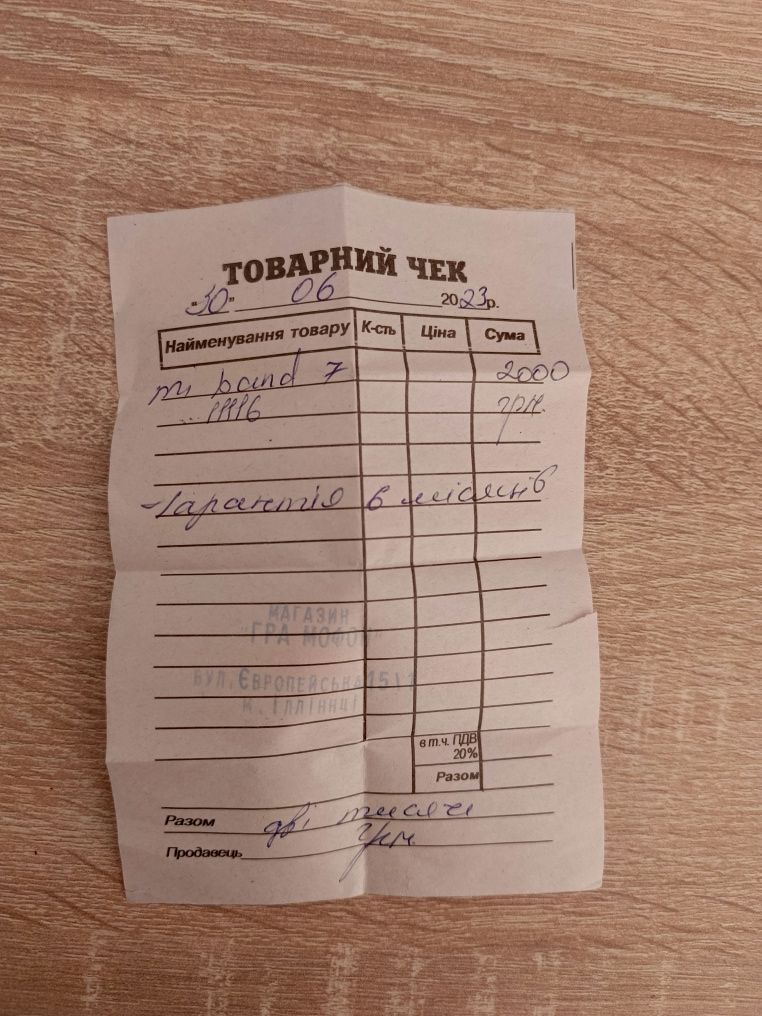 ТОВАРНИЙ ЧЕК
"30" 06 2023р.
Найменування товару К-сть Ціна Сума
mi band 7 2000
11116 грн.
-Гарантія 6 місяців
МАГАЗИН
"ГРАМОФОН"
БУЛ.ЄВРОПЕЙСЬКА
м. ІЛЛІНЦІ
в т.ч. ПДВ
20%
Разом
Разом дві тисячі
грн
Продавець